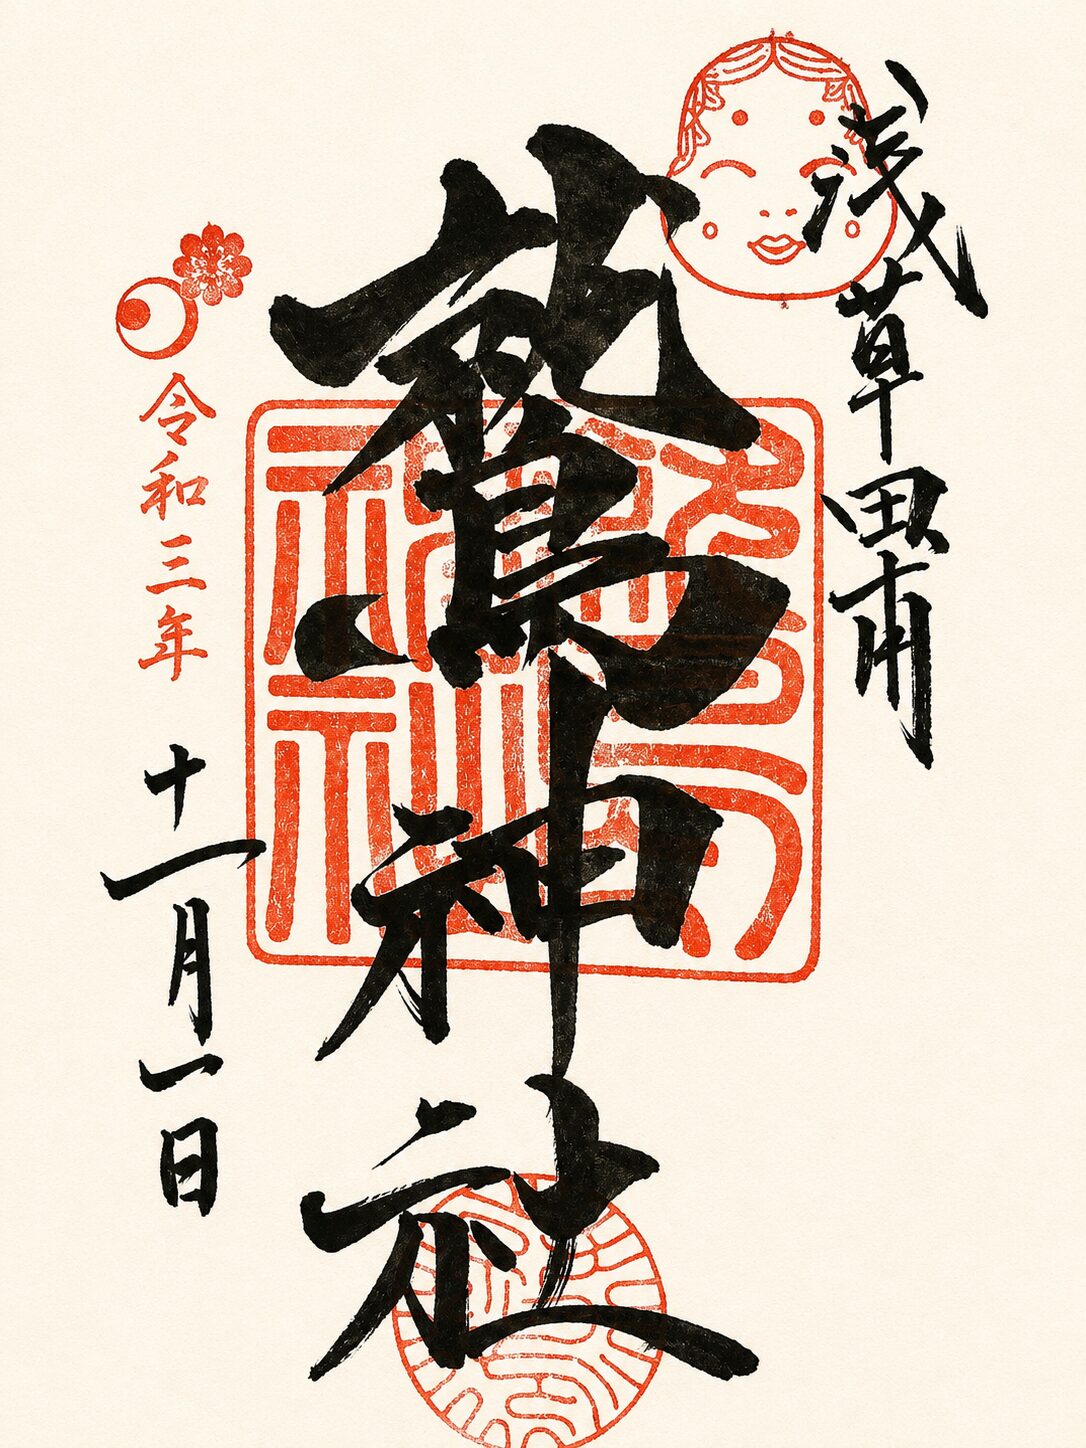 浅草田甫
鷲神社
令和三年十一月一日